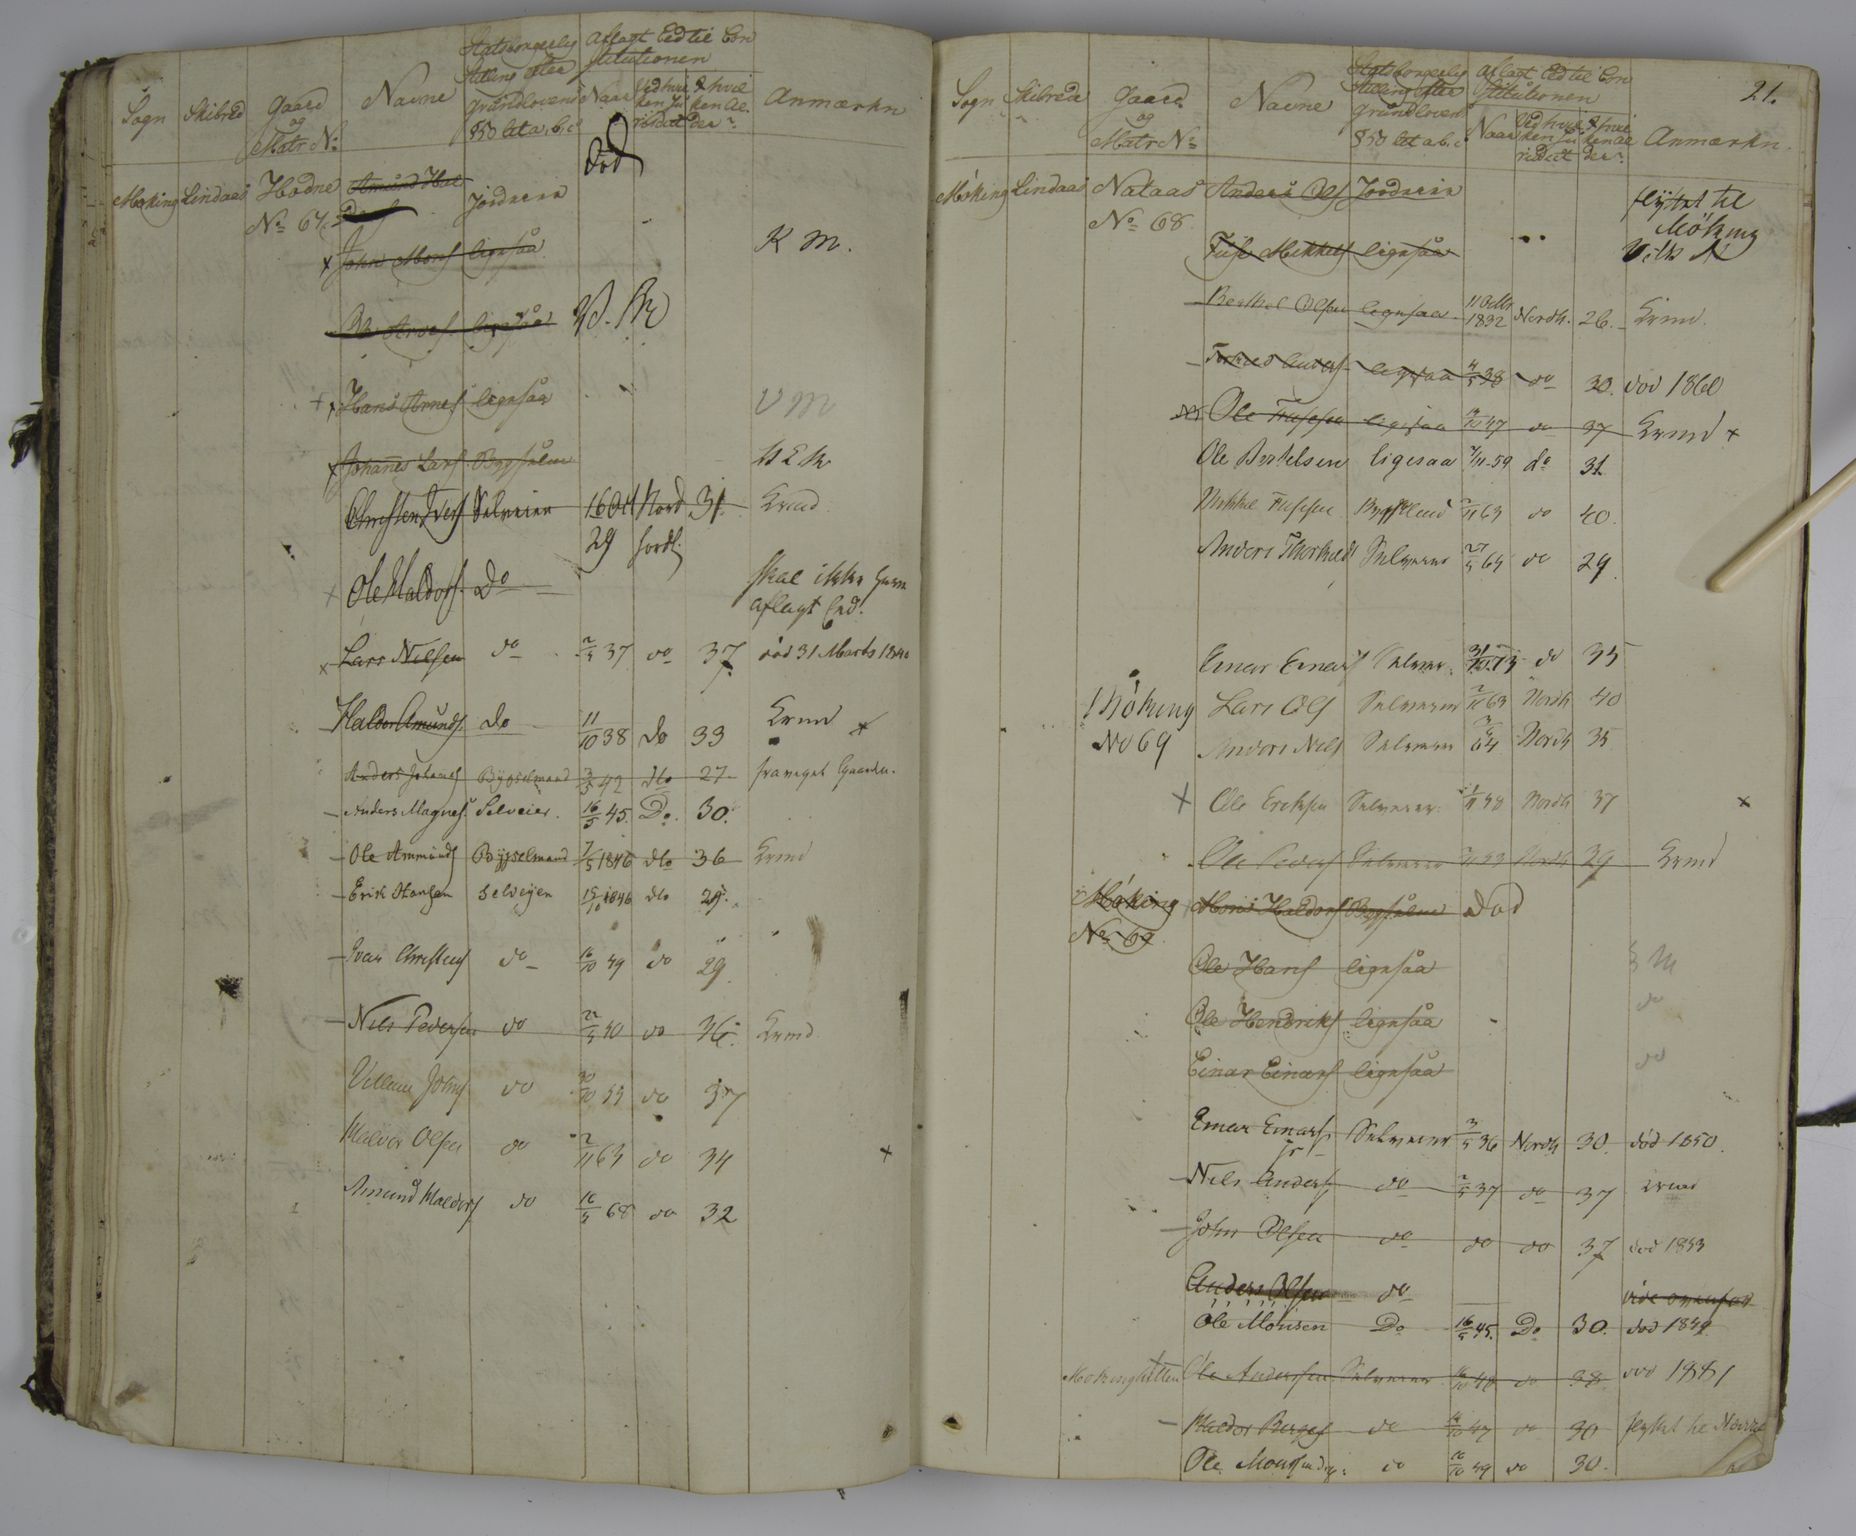 Sogn Skibred Gaard og Matr No Navne Statsborgerlig Stilling efter Grundlovens §50 lit a, b, c Aflagt Eed til Constitutionen Naar Ved hvilken Jurisdict I hvilken Alder Anmærkn
Møking Lindaas Hodne No 67 Amund Hal Jordeeie Død
x John Mons ligesaa K M.
Ole Arnes ligesaa
x Hans Arnes ligesaa V M
x Johannes Lars Bygselm
Christen Ivers Selveier 16 Oct 29 Nordhordl. 31. Ermd
Ole Haldors. Do Skal ikke have aflagt Eed.
x Lars Nilsen do 2/5 37 do 37 død 31 Marts 1840
Haldor Amunds. do 11/10 38 do 33 Ermd x
Anders Johans Bygselmand 3/5 42 dto 27 fraveget Gaarden.
Anders Magnes. Selveier. 16/5 45. Do. 30.
Ole Ammunds Bygselmand 7/5 1846 dto 36 Ermd
Erik Hansen Selvejer 15/10 1846 dto 29.
Ivar Christens do 16/10 49 do 29
Nils Pedersen do 22/5 50 do 36 Ermd
Villum Johns do 30/10 55 do 37
Haldor Olsen do 2/11 63 do 34 x
Amund Haldors do 16/5 68 do 32
21.
Sogn Skibrede Gaard og Matr No Navne Statsborgerlig Stilling efter Grundloven §50 lit a b. c Aflagt Eed til Constitutionen Naar Ved hvilken Jurisdict I hvilken Alder Anmærkn.
Møking Lindaas Nataas No 68. Anders Ols Jordeeie flyttet til Møking
Fuse Mikkels ligesaa
Berthel Olsen ligesaa 11 Octbr 1832 Nordh. 26. Ermd.
Anders ligesaa 4/5 38 do 30. død 1860
Ole Fussen ligesaa 47 do 37 Ermd x
Ole Bertelsen ligesaa 7/11-59 do 31
Mikkel Fussen Bygselmd 2/11 63 do 40.
Anders Selveier 27/5 64 do 29.
Einar Einars Selveier 31/10.73 do 35
Møking No 69 Lars Ols Selveier 2/11 63 Nordh 40
Anders Nils Selveier 64 Nordh 35
x Ole Eriksen Selveier Nordh 37 x
Ole Peders Selveier Nordh 39 Ermd
Møking No 69 Mons Haldors Bygselm død
Ole Hans ligesaa
Ole Hendriks ligesaa do
Einar Einars ligesaa do
Einar Einars jr Selveier 3/5 36 Nordh 30. død 1850.
Nils Anders do 2/5 37 do 37 Ermd
John Olsen do do do 37 død 1853
Anders Olsen do vide ovenfor
Ole Monsen Do 16/5 45. Do 30. død 1849
Mokinghitten Ole Andersen Selveier 16/10 48 do 38 død 1881
Haldor Børges do 47 do 30 flyttet til
Ole Mons do 16/10 49 do 30.